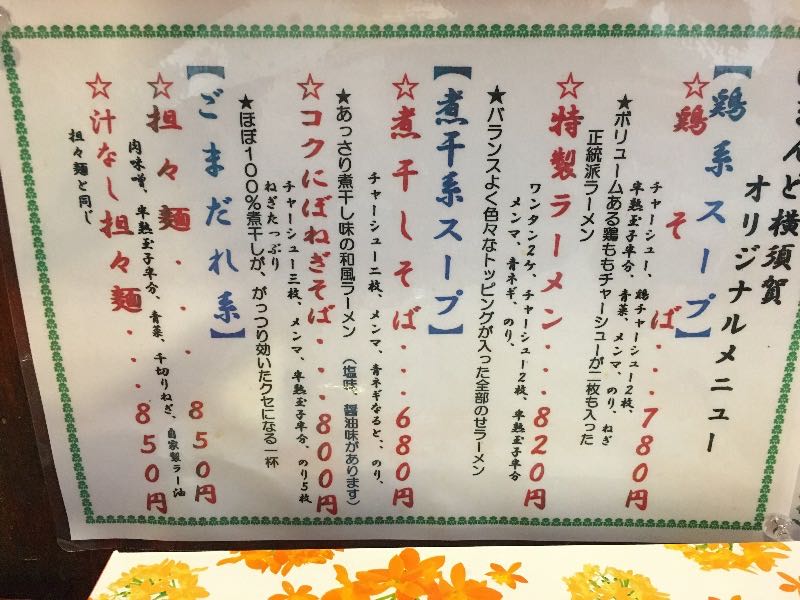 さんど横須賀
オリジナルメニュー
【鶏系スープ】
☆鶏そば・・・780円
チャーシュー、鶏チャーシュー2枚、
半熟玉子半分、青菜、メンマ、のり、ねぎ
★ボリュームある鶏ももチャーシューが二枚も入った
正統派ラーメン
☆特製ラーメン・・・820円
ワンタン2ケ、チャーシュー2枚、半熟玉子半分
メンマ、青ネギ、のり、
★バランスよく色々なトッピングが入った全部のせラーメン
【煮干系スープ】
☆煮干しそば・・・680円
チャーシュー二枚、メンマ、青ネギなると、のり、
★あっさり煮干し味の和風ラーメン (塩味、醤油味があります)
☆コクにぼねぎそば・・・800円
チャーシュー三枚、メンマ、半熟玉子半分、のり5枚
ねぎたっぷり
★ほぼ100%煮干しが、がっつり効いたクセになる一杯
【ごまだれ系】
☆担々麺・・・850円
肉味噌、半熟玉子半分、青菜、千切りねぎ、自家製ラー油
☆汁なし担々麺・・・850円
担々麺と同じ